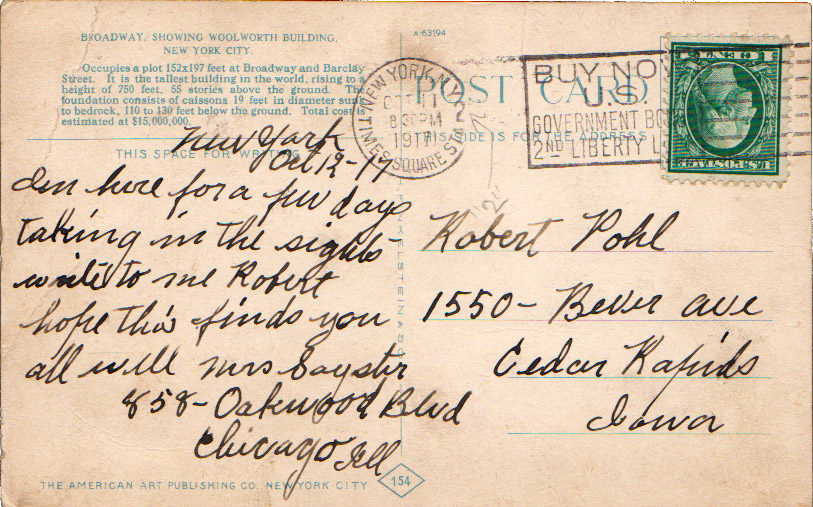 BROADWAY, SHOWING WOOLWORTH BUILDING,
NEW YORK CITY.
Occupies a plot 152x197 feet at Broadway and Barclay
Street. It is the tallest building in the world, rising to a
height of 750 feet, 55 stories above the ground. The
foundation consists of caissons 19 feet in diameter sunk
to bedrock, 110 to 130 feet below the ground. Total cost is
estimated at $15,000,000.
THIS SPACE FOR WRITING
New York
Oct 12-17
Am here for a few days
taking in the sights
write to me Robert
hope this finds you
all well Mrs
858- Oakwood Blvd
Chicago Ill
THE AMERICAN ART PUBLISHING CO. NEW YORK CITY
154
A-63194
POST CARD
THIS SIDE IS FOR THE ADDRESS
NEW YORK, N.Y.
11
8 PM
1917
TIMES SQUARE STA.
BUY NO
U.S.
GOVERNMENT BO
2ND LIBERTY L
U.S. POSTAGE
"12"
Robert Pohl
1550- Bever ave
Cedar Rapids
Iowa